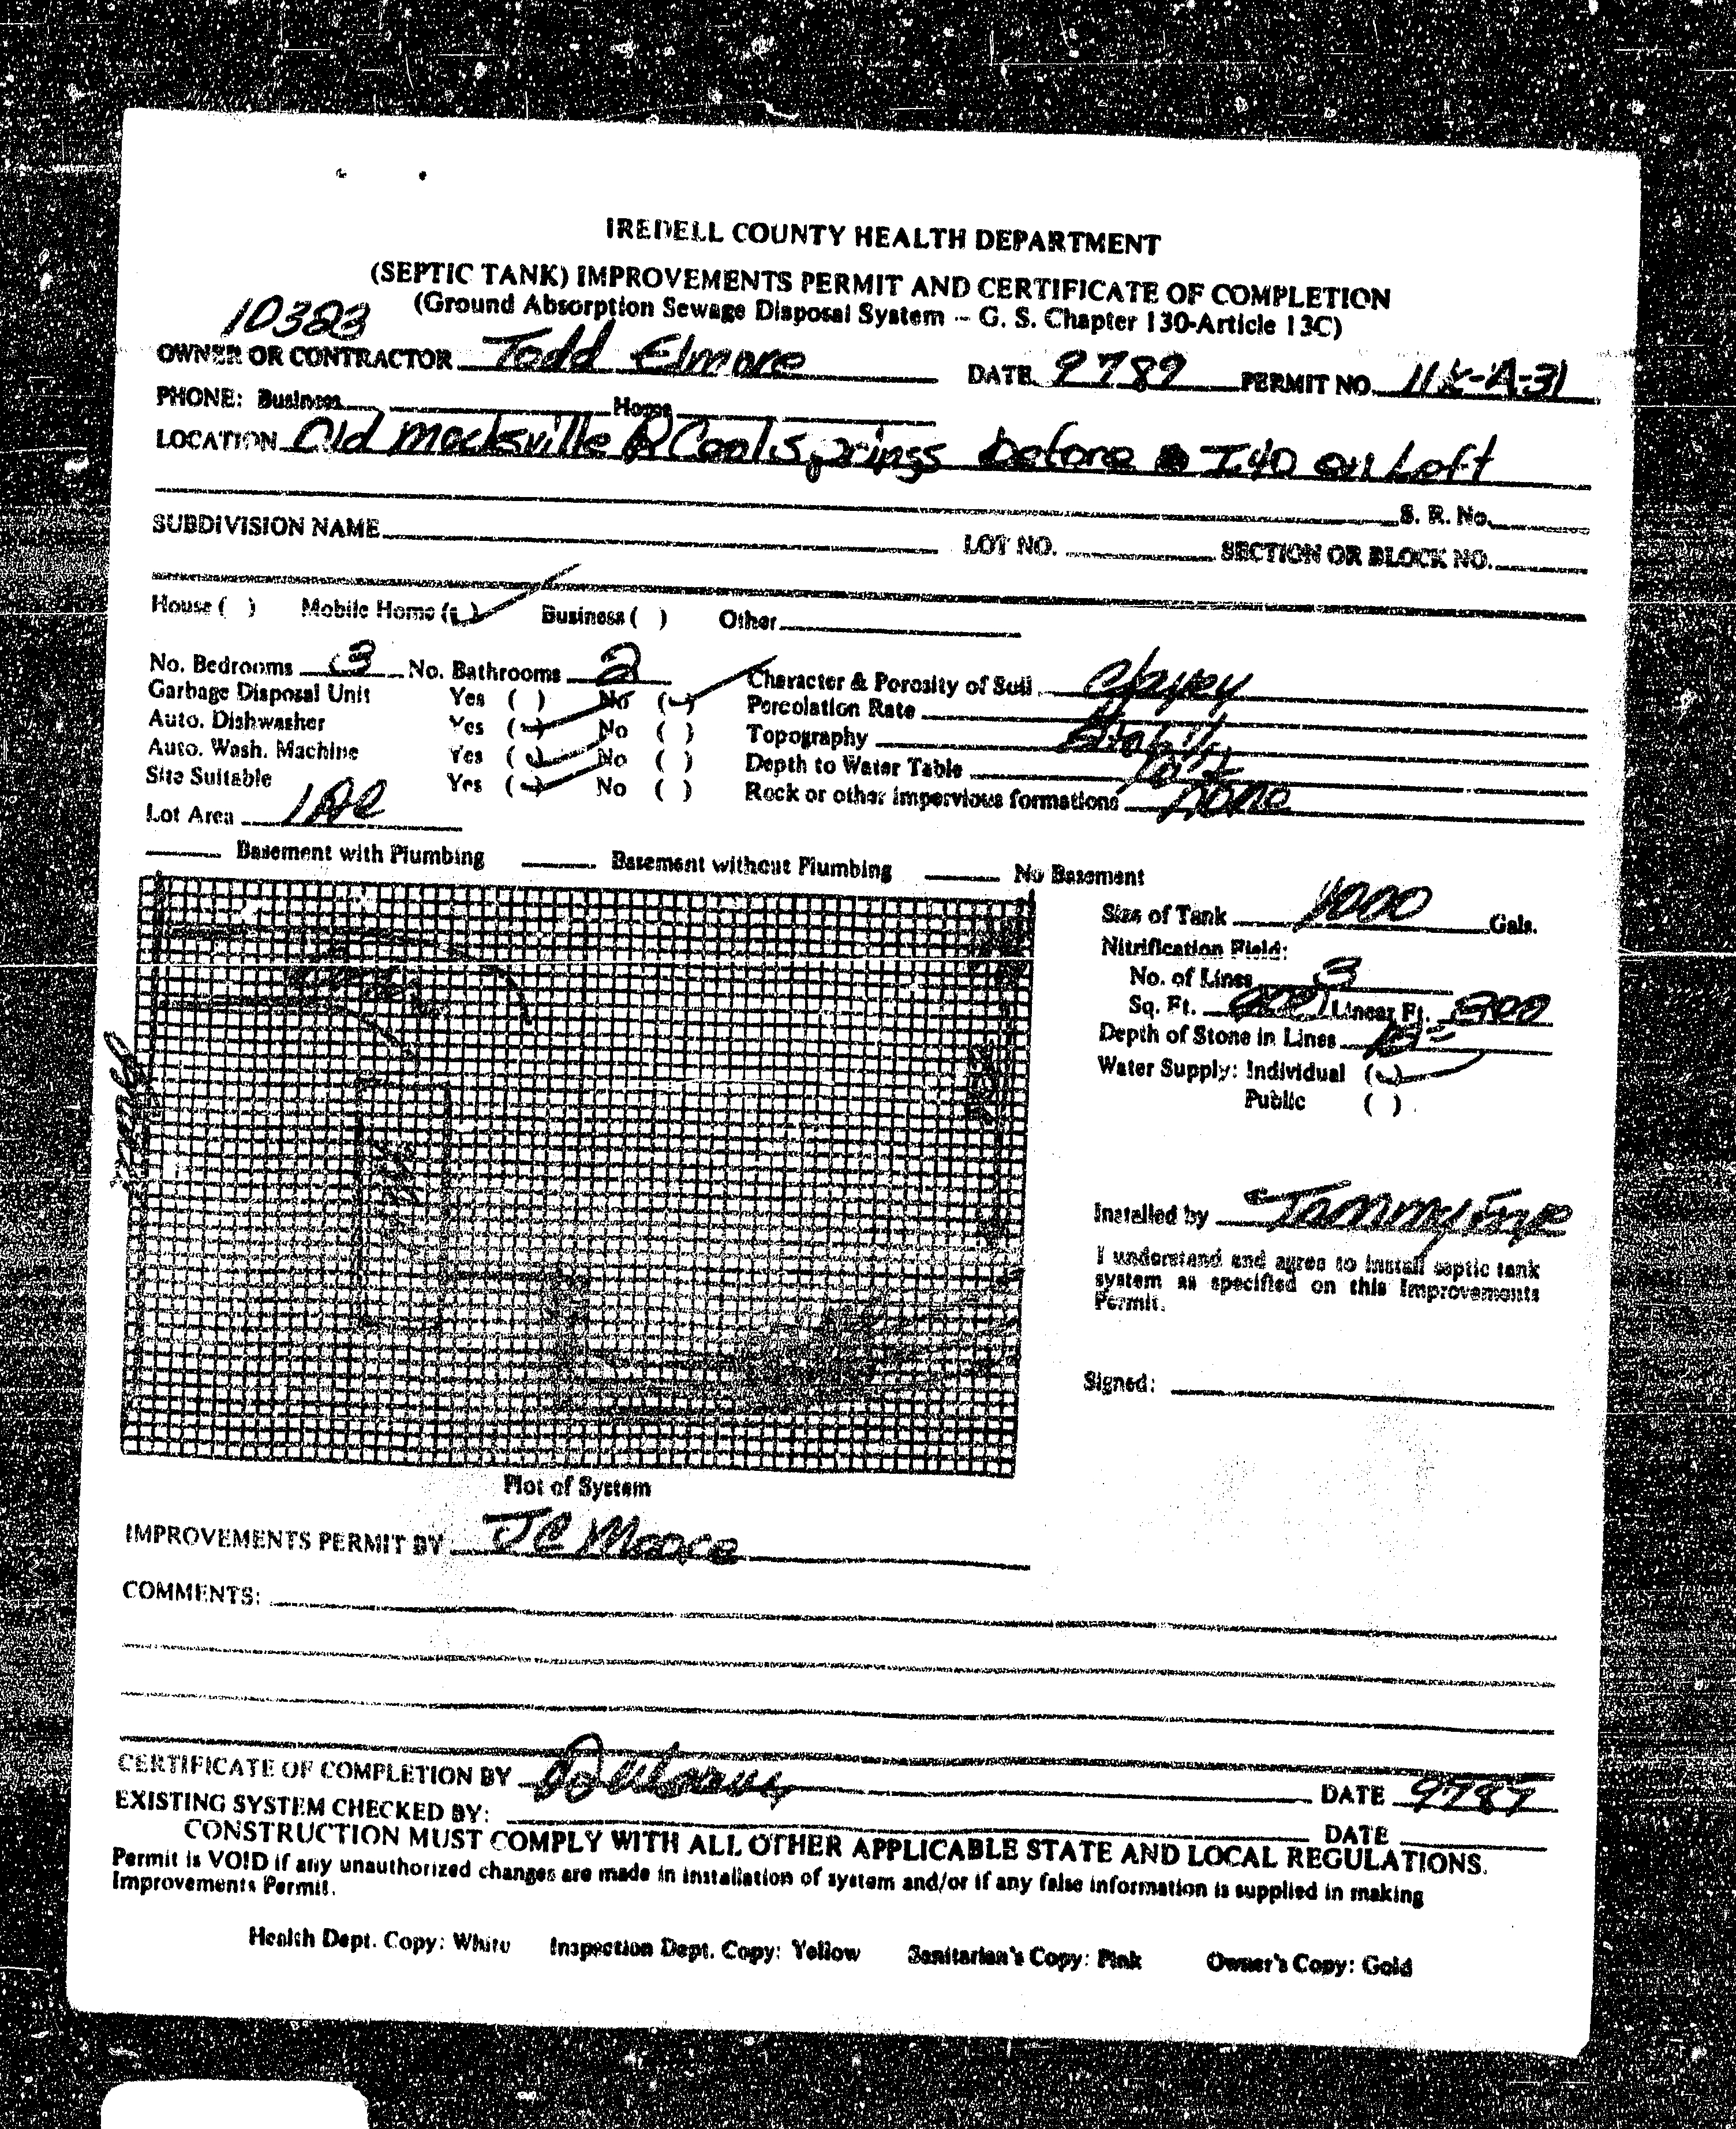 IREDELL COUNTY HEALTH DEPARTMENT
(SEPTIC TANK) IMPROVEMENTS PERMIT AND CERTIFICATE OF COMPLETION
(Ground Absorption Sewage Disposal System -- G. S. Chapter 130-Article 13C)
10323
OWNER OR CONTRACTOR Todd Elmore DATE 9789 PERMIT NO. 11K-A-31
PHONE: Business Home
LOCATION Old Mocksville Coolsprings before I40 on Left
S. R. No.
SUBDIVISION NAME LOT NO. SECTION OR BLOCK NO.
House ( ) Mobile Home (✓) Business ( ) Other
No. Bedrooms 3 No. Bathrooms 2 Character & Porosity of Soil clayey
Garbage Disposal Unit Yes ( ) No (✓) Percolation Rate
Auto. Dishwasher Yes (✓) No ( ) Topography
Auto. Wash. Machine Yes (✓) No ( ) Depth to Water Table
Site Suitable Yes (✓) No ( ) Rock or other impervious formations none
Lot Area 1 Ac
Basement with Plumbing Basement without Plumbing No Basement
Size of Tank 1000 Gals.
Nitrification Field:
No. of Lines 3
Sq. Ft. 900 Linear Ft. 300
Depth of Stone in Lines
Water Supply: Individual (✓)
Public ( )
Installed by Tommy
I understand and agree to install septic tank
system as specified on this Improvements
Permit.
Signed:
Plot of System
IMPROVEMENTS PERMIT BY JC Moore
COMMENTS:
CERTIFICATE OF COMPLETION BY DATE 9789
EXISTING SYSTEM CHECKED BY: DATE
CONSTRUCTION MUST COMPLY WITH ALL OTHER APPLICABLE STATE AND LOCAL REGULATIONS.
Permit is VOID if any unauthorized changes are made in installation of system and/or if any false information is supplied in making
Improvements Permit.
Health Dept. Copy: White Inspection Dept. Copy: Yellow Sanitarian's Copy: Pink Owner's Copy: Gold